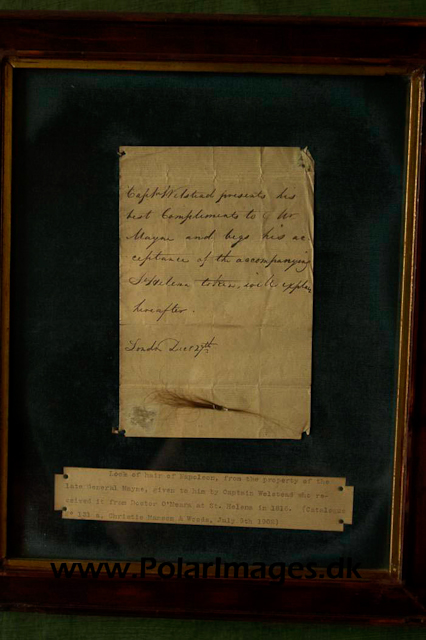 Captn Welstead presents his
best Compliments to Mr
Mayne and begs his ac
ceptance of the accompanying
St Helena token, will explain
hereafter.
London Decr 27th
Lock of hair of Napoleon, from the property of the
late General Mayne, given to him by Captain Welstead who re-
ceived it from Doctor O'Meara at St. Helena in 1816. (Catalogue
131 a. Christie Manson & Woods, July 5th
www.PolarImages.dk